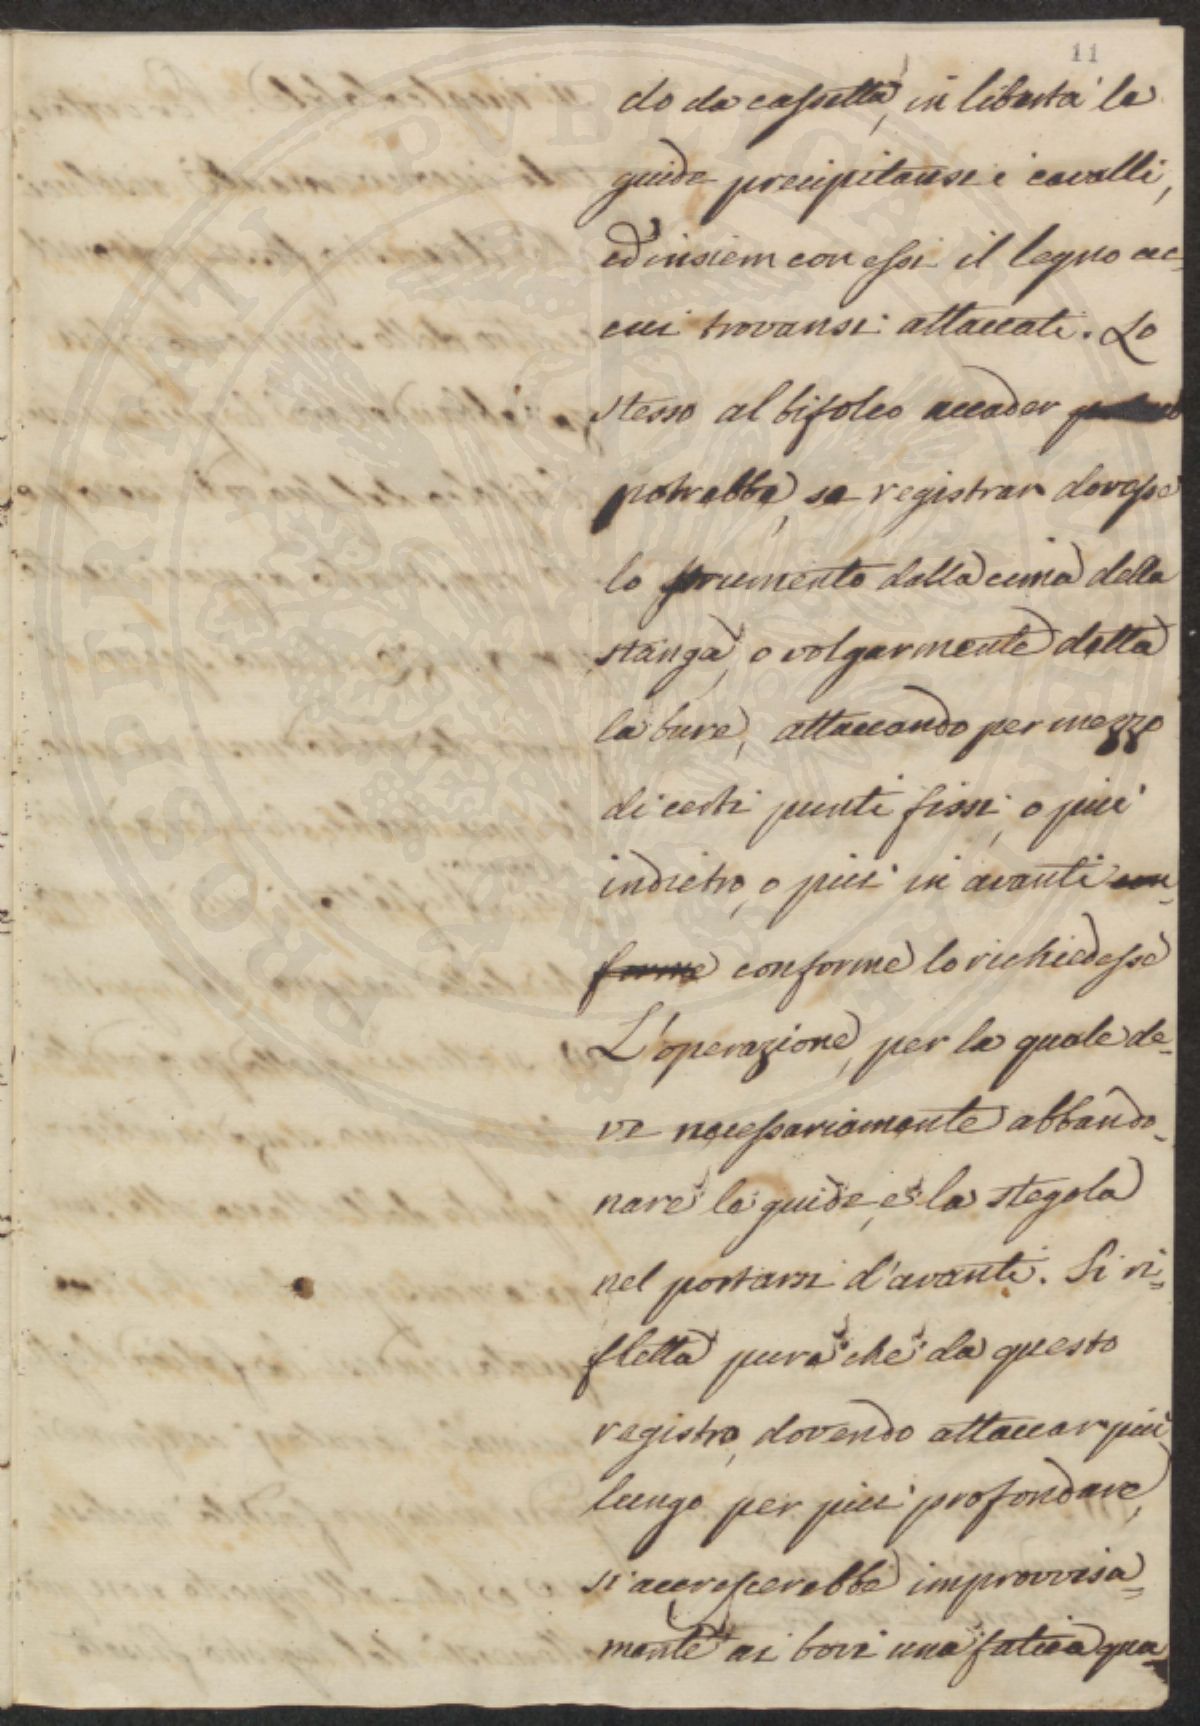 11
do da cassetta, in libertà le
guide precipitansi i cavalli,
ed insiem con essi il legno ac-
cui trovansi attaccati. Lo
stesso al bifolco accader
potrebbe, se registrar dovesse
lo strumento dalla cima della
stanga, o volgarmente detta
la bure, attaccando per mezzo
di certi punti fissi, o più
indietro, o più in avanti con-
forme conforme lo richiedesse
L'operazione, per la quale de-
ve necessariamente abbando-
nare le guide, e la stegola
nel portarsi d'avanti. Si ri-
fletta pure che da questo
registro, dovendo attaccar più
lungo per più profondare,
si accrescerebbe improvvisa-
mente ai bovi una fatica qua-
PROSPERITATI PUBLICAE